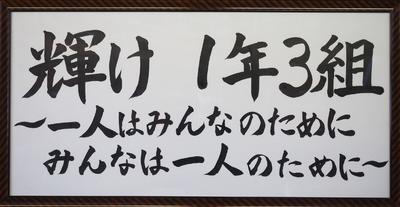 輝け 1年3組
～一人はみんなのために
みんなは一人のために～